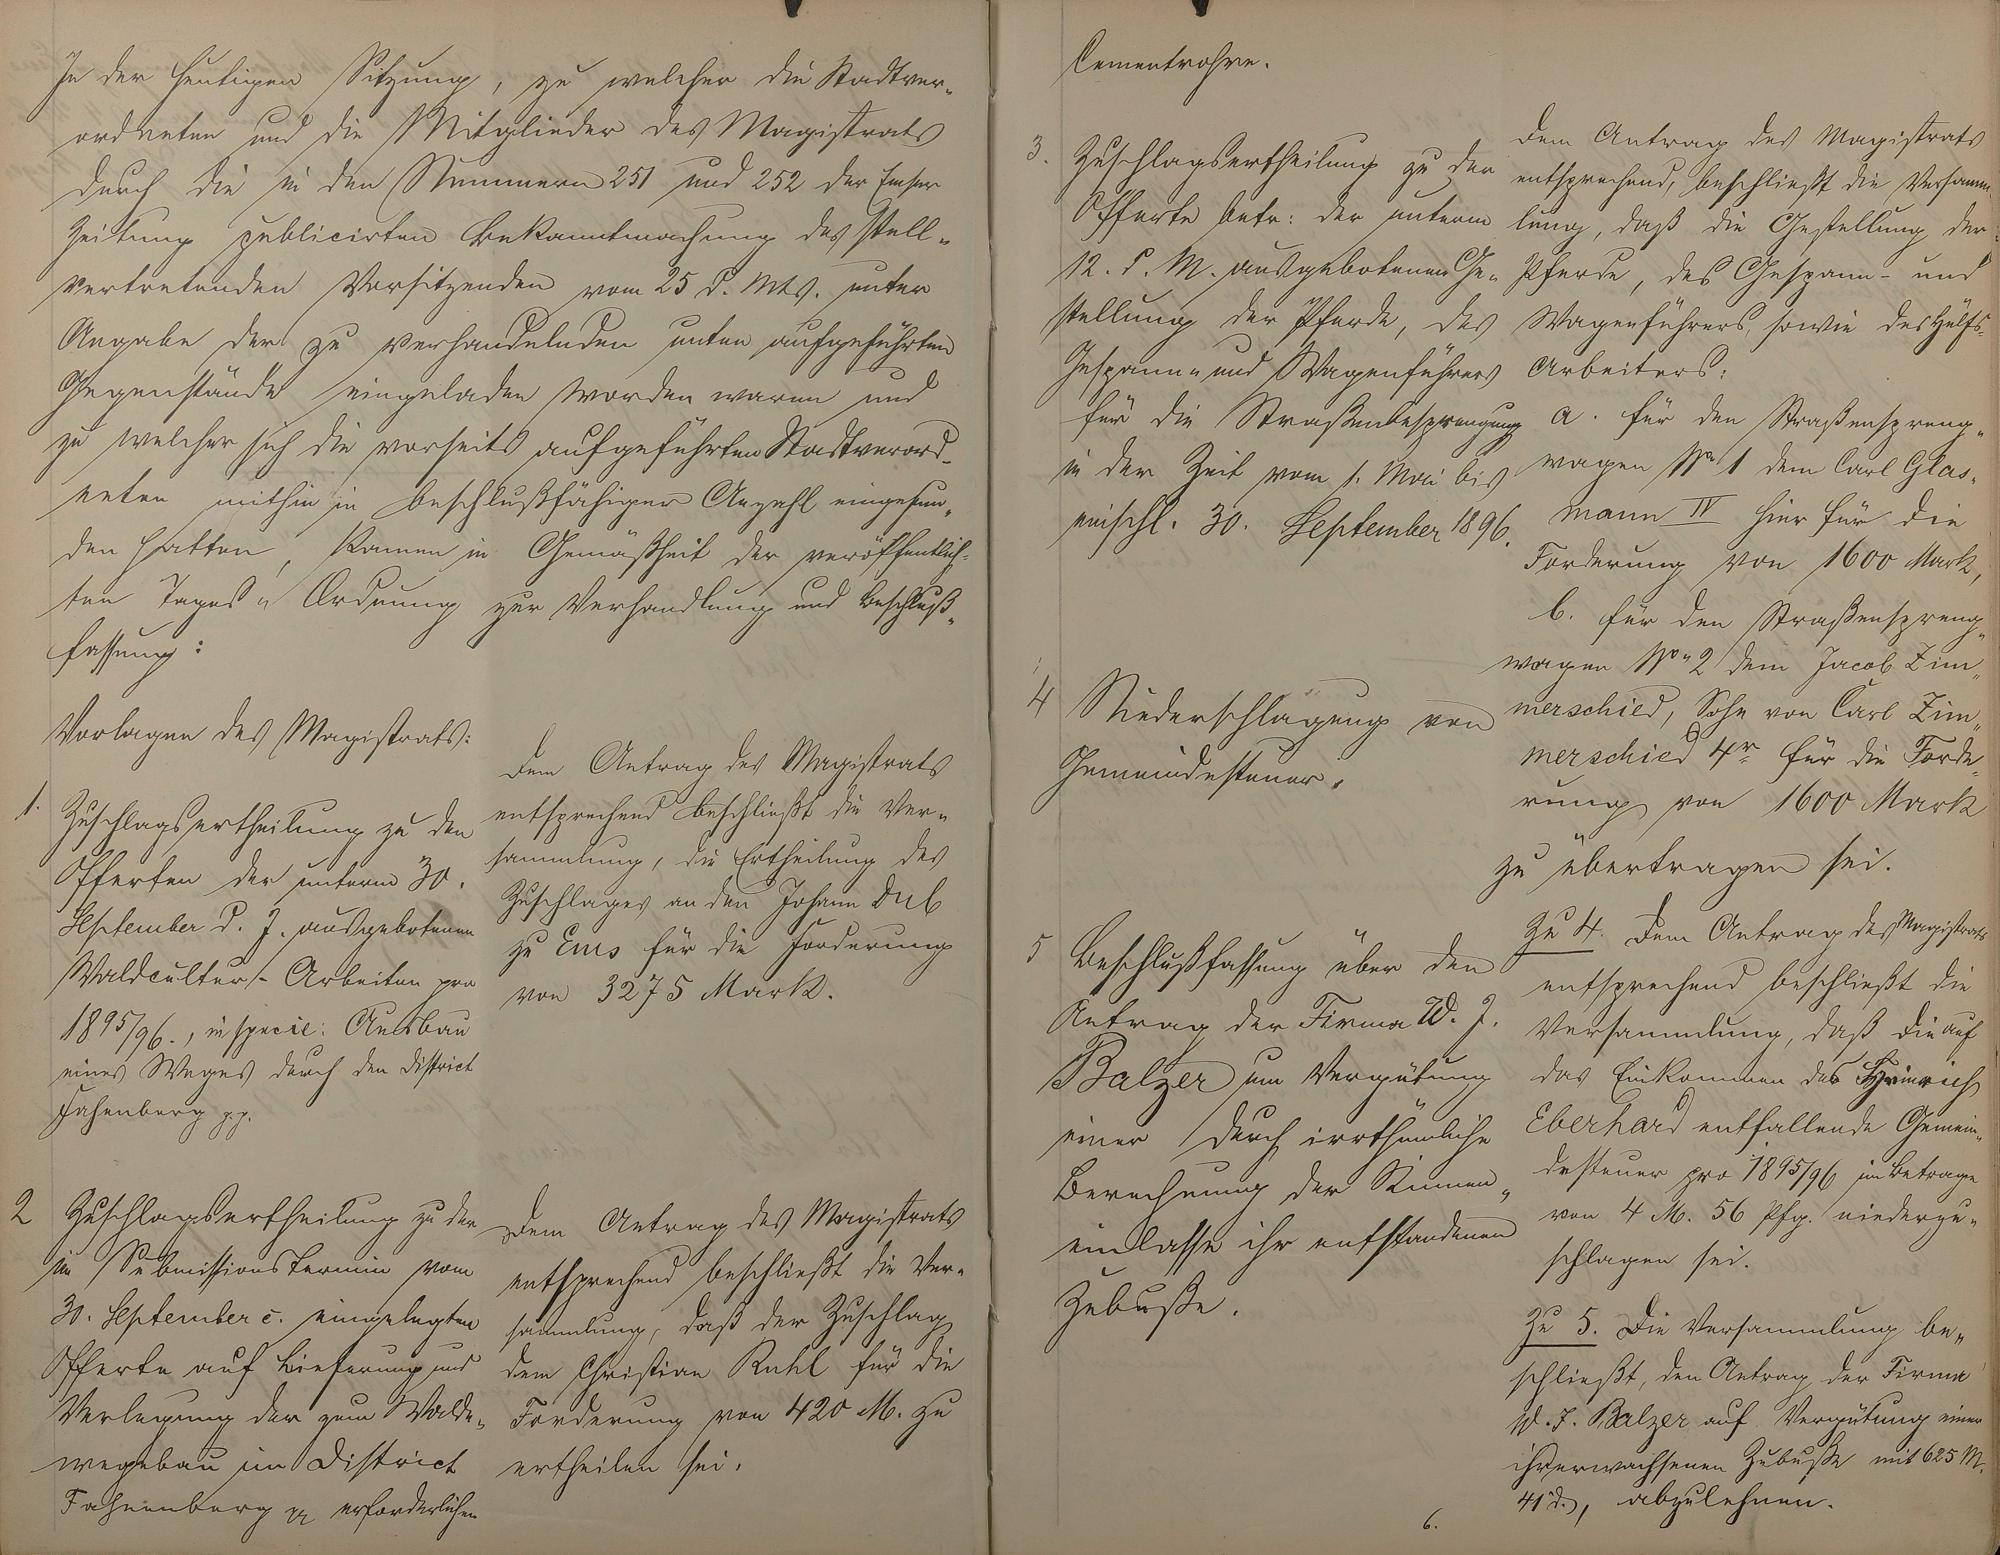 In der heutigen Sitzung, zu welcher die Stadtver-
ordneten und die Mitglieder des Magistrats
durch die in den Nummern 251 und 252 der Emser
Zeitung publicirten Bekanntmachung des stell-
vertretenden Vorsitzenden vom 25 d. Mts. unter
Angabe der zu verhandelnden unten aufgeführten
Gegenstände eingeladen worden waren und
zu welcher sich die vorseits aufgeführten Stadtverord-
neten mithin in beschlußfähiger Anzahl eingefun-
den hatten, kamen in Gemäßheit der veröffentlich-
ten Tages-Ordnung zur Verhandlung und Beschluß-
fassung:
Vorlagen des Magistrats:
1. Zuschlagsertheilung zu den
Offerten der unterm 30.
September d. J. ausgebotenen
Waldcultur-Arbeiten pro
1895/96., in specie: Ausbau
eines Weges durch den District
Fahnenberg p.p.
Dem Antrag des Magistrats
entsprechend beschließt die Ver-
sammlung, die Ertheilung des
Zuschlages an den Johann Dub
zu Ems für die Forderung
von 3275 Mark.
2 Zuschlagsertheilung zu der
im Submissionstermin vom
30. September c. eingelegten
Offerte auf Lieferung und
Verlegung der zum Walde-
wegebau im District
Fahnenberg pp erforderlichen
Dem Antrag des Magistrats
entsprechend beschließt die Ver-
sammlung, daß der Zuschlag
dem Christian Ruhl für die
Forderung von 420 M. zu
ertheilen sei.
Cementrohre.
3. Zuschlagsertheilung zu der
Offerte betr: der unterm
12. d. M. ausgebotenen Ge-
stellung der Pferde, des
Gespann- und Wagenführers
für die Straßenbesprengung
in der Zeit vom 1. Mai bis
einschl. 30. September 1896.
Dem Antrag des Magistrats
entsprechend, beschließt die Versamm-
lung, daß die Gestellung der
Pferde, des Gespann- und
Wagenführers, sowie des Hülfs-
Arbeiters:
a. für den Straßenspreng-
wagen No 1 dem Carl Glas-
mann IV hier für die
Forderung von 1600 Mark,
b. für den Straßenspreng-
wagen No 2 dem Jacob Zim-
merschied, Sohn von Carl Zim-
merschied 4r für die Forde-
rung von 1600 Mark
zu übertragen sei.
4 Niederschlagung von
Gemeindesteuer.
Zu 4. Dem Antrag des Magistrats
entsprechend beschließt die
Versammlung, daß die auf
das Einkommen des Heinrich
Eberhard entfallende Gemein-
desteuer pro 1895/96 im Betrage
von 4 M. 56 Pfg. niederzu-
schlagen sei.
5 Beschlußfassung über den
Antrag der Firma W. J.
Balzer um Vergütung
einer durch irrthümliche
Berechnung der Rinnen-
einlasse ihr entstandenen
Zubuße.
Zu 5. Die Versammlung be-
schließt, den Antrag der Firma
W. J. Balzer auf Vergütung einer
ihr erwachsenen Zubuße mit 625 M.
41 d., abzulehnen.
6.